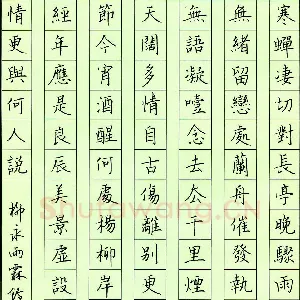 寒蟬淒切對長亭晚驟雨
無緒留戀處蘭舟催發執
無語凝噎念去厺千里煙
天闊多情自古傷離別更
節今宵酒醒何處楊柳岸
經年應是良辰美景虛設
情更與何人說
柳永雨霖
Shufawang.CN